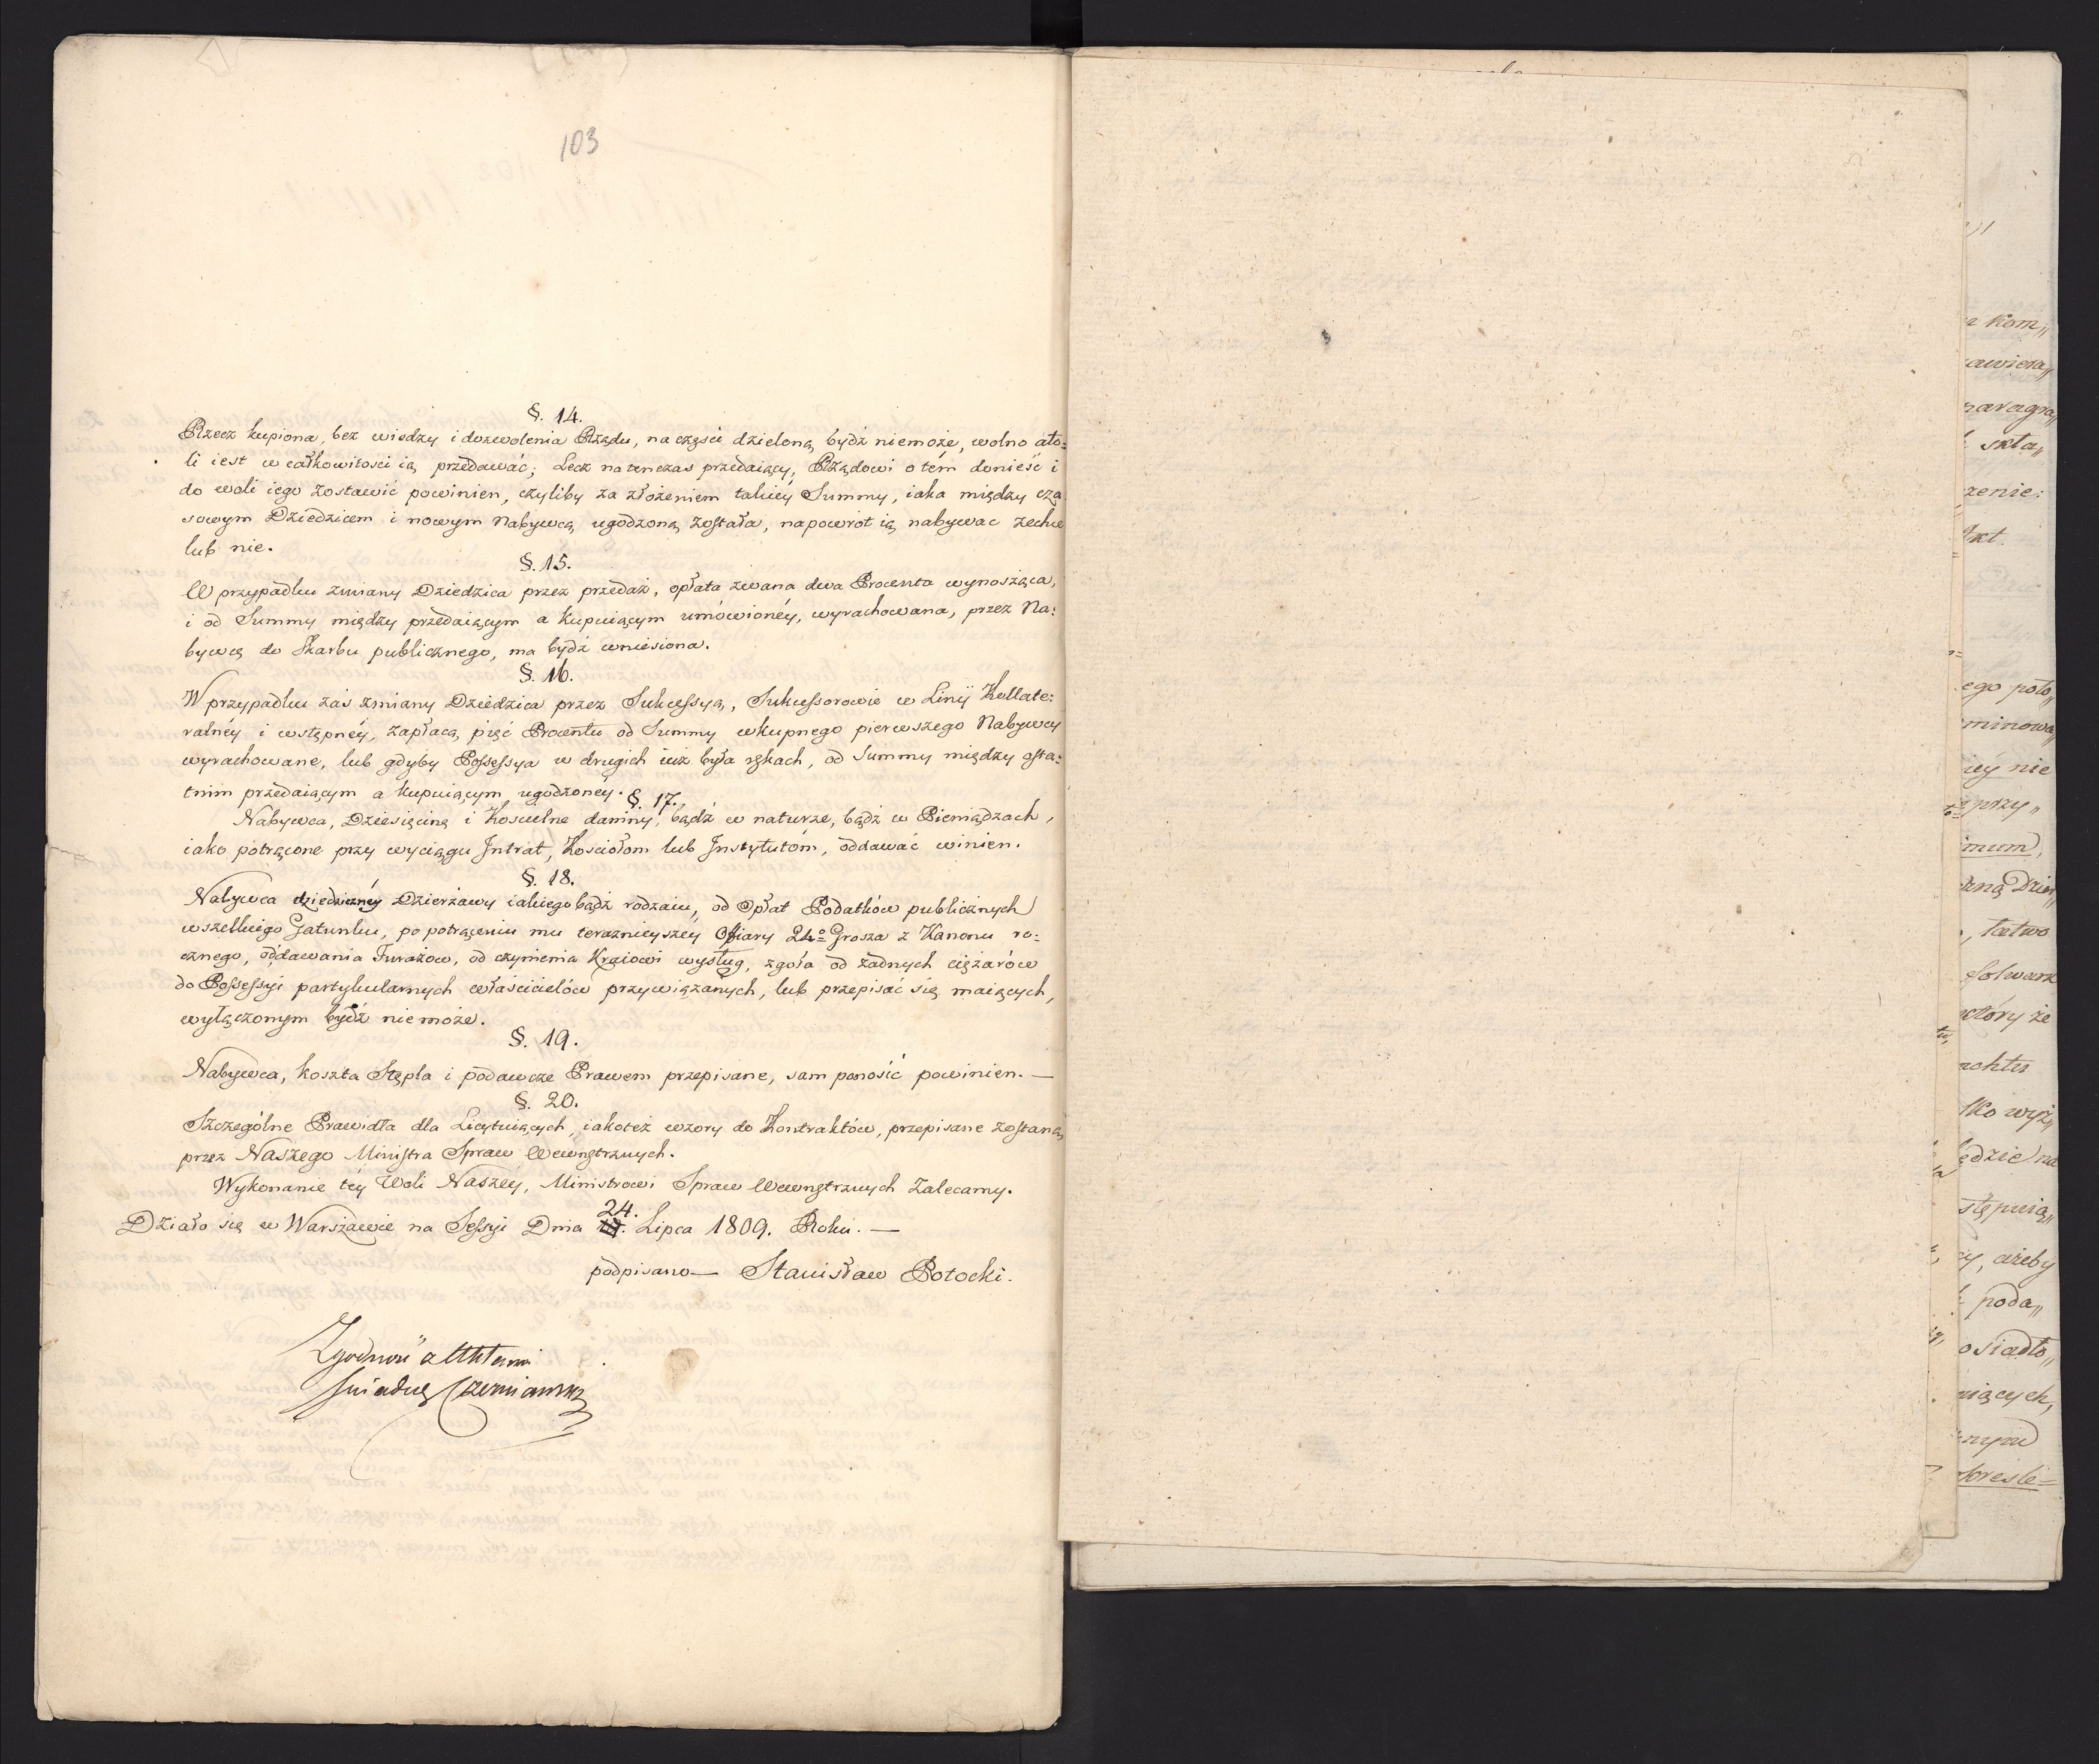 103
§. 14.
Rzecz kupiona, bez wiedzy i dozwolenia Rządu, na częście dzieloną bydź niemoże, wolno ato=
li iest w całkowitosci ią przedawać; Lecz natenczas przedaiący, Rządowi o tém donieść i
do woli iego zostawić powinien, czyliby za złożeniem takiey Summy, iaka między cza
sowym Dziedzicem i nowym Nabywcą ugodzoną została, napowrót ią nabywac zechce
lub nie.
§. 15.
W przypadku zmiany Dziedzica przez przedaż, opłata zwana dwa Procenta wynosząca,
i od Summy między przedaiącym a kupuiącym umówionéy, wyrachowana, przez Na:
bywcę do Skarbu publicznego, ma bydź wniesiona.
§. 16.
W przypadku zaś zmiany Dziedzica przez Sukcessyą, Sukcessorowie w Linÿ Kollate:
ralnéy i wstępnéy, zapłacą pięć Procentu od Summy wkupnego pierwszego Nabywcy
wyrachowane, lub gdyby Possessya w drugich iuż była rękach, od Summy między osta:
tnim przedaiącym a kupuiącym ugodzonéy.
§. 17.
Nabywca, Dziesięcinę i Kościelne daniny, bądź w naturze, bądź w Pieniądzach,
iako potrącone przy wyciągu Intrat, Kosciołom lub Instytutóm, oddawać winien.
§. 18.
Nabywca dziedzicznéy Dzierżawy iakiego bądź rodzaiu, od Opłat Podatków publicznych
wszelkiego Gatunku, po potrąceniu mu teraznieyszey Offiary 24º Grosza z Kanonu ro:
cznego, oddawania Furażow, od czynienia Kraiowi wysług, zgoła od żadnych ciężarów
do Possessyi partykularnych właścicielów przywiązanych, lub przepisać się maiących,
wyłączonym bydź niemoże.
§. 19.
Nabywca, koszta Stępla i podawcze Prawem przepisane, sam ponosić powinien. —
§. 20.
Szczególne Prawidła dla Licytuiących, iakoteż wzory do Kontraktów, przepisane zostaną
przez Naszego Ministra Spraw Wewnętrznych.
Wykonanie téy Woli Naszéy, Ministrowi Spraw Wewnętrznych Zalecamy.
24.
Działo się w Warszawie na Sessyi Dnia Lipca 1809. Roku. —
podpisano — Stanisław Potocki.
Zgodność z Aktami
świadczę
kom„
zawiera„
paragra„
skła„
ego poło„
minowa„
iéy nie
przy„
imum,
łatwo
folwark
który że
wyż„
ędzie na
ażeby
poda„
osiadło„
iących,